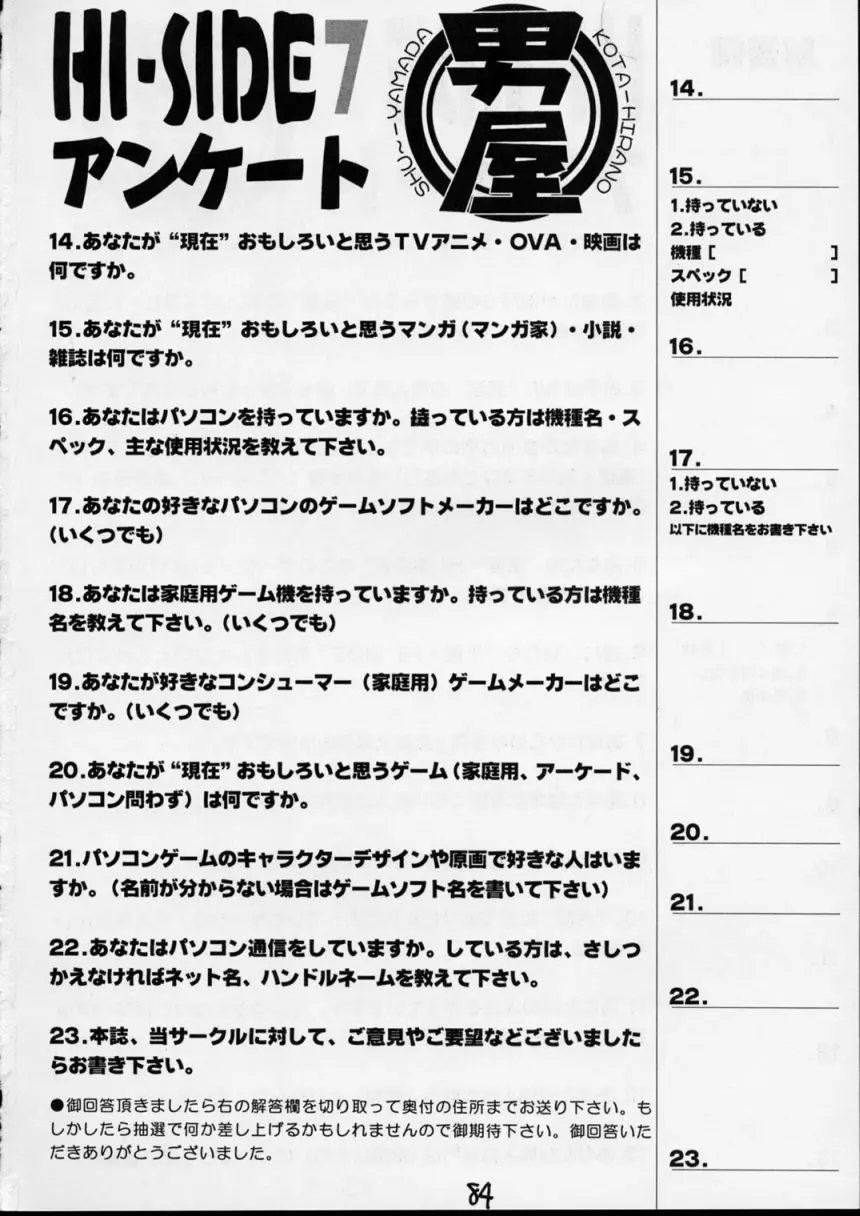 HI-SIDE7
アンケート
男屋
SHU~-YAMADA
KOTA-HIRANO
14.あなたが“現在”おもしろいと思うTVアニメ・OVA・映画は
何ですか。
15.あなたが“現在”おもしろいと思うマンガ(マンガ家)・小説・
雑誌は何ですか。
16.あなたはパソコンを持っていますか。持っている方は機種名・ス
ペック、主な使用状況を教えて下さい。
17.あなたの好きなパソコンのゲームソフトメーカーはどこですか。
(いくつでも)
18.あなたは家庭用ゲーム機を持っていますか。持っている方は機種
名を教えて下さい。(いくつでも)
19.あなたが好きなコンシューマー(家庭用)ゲームメーカーはどこ
ですか。(いくつでも)
20.あなたが“現在”おもしろいと思うゲーム(家庭用、アーケード、
パソコン問わず)は何ですか。
21.パソコンゲームのキャラクターデザインや原画で好きな人はいま
すか。(名前が分からない場合はゲームソフト名を書いて下さい)
22.あなたはパソコン通信をしていますか。している方は、さしつ
かえなければネット名、ハンドルネームを教えて下さい。
23.本誌、当サークルに対して、ご意見やご要望などございました
らお書き下さい。
●御回答頂きましたら右の解答欄を切り取って奥付の住所までお送り下さい。も
しかしたら抽選で何か差し上げるかもしれませんので御期待下さい。御回答いた
だきありがとうございました。
84
14.
15.
1.持っていない
2.持っている
機種[ ]
スペック[ ]
使用状況
16.
17.
1.持っていない
2.持っている
以下に機種名をお書き下さい
18.
19.
20.
21.
22.
23.